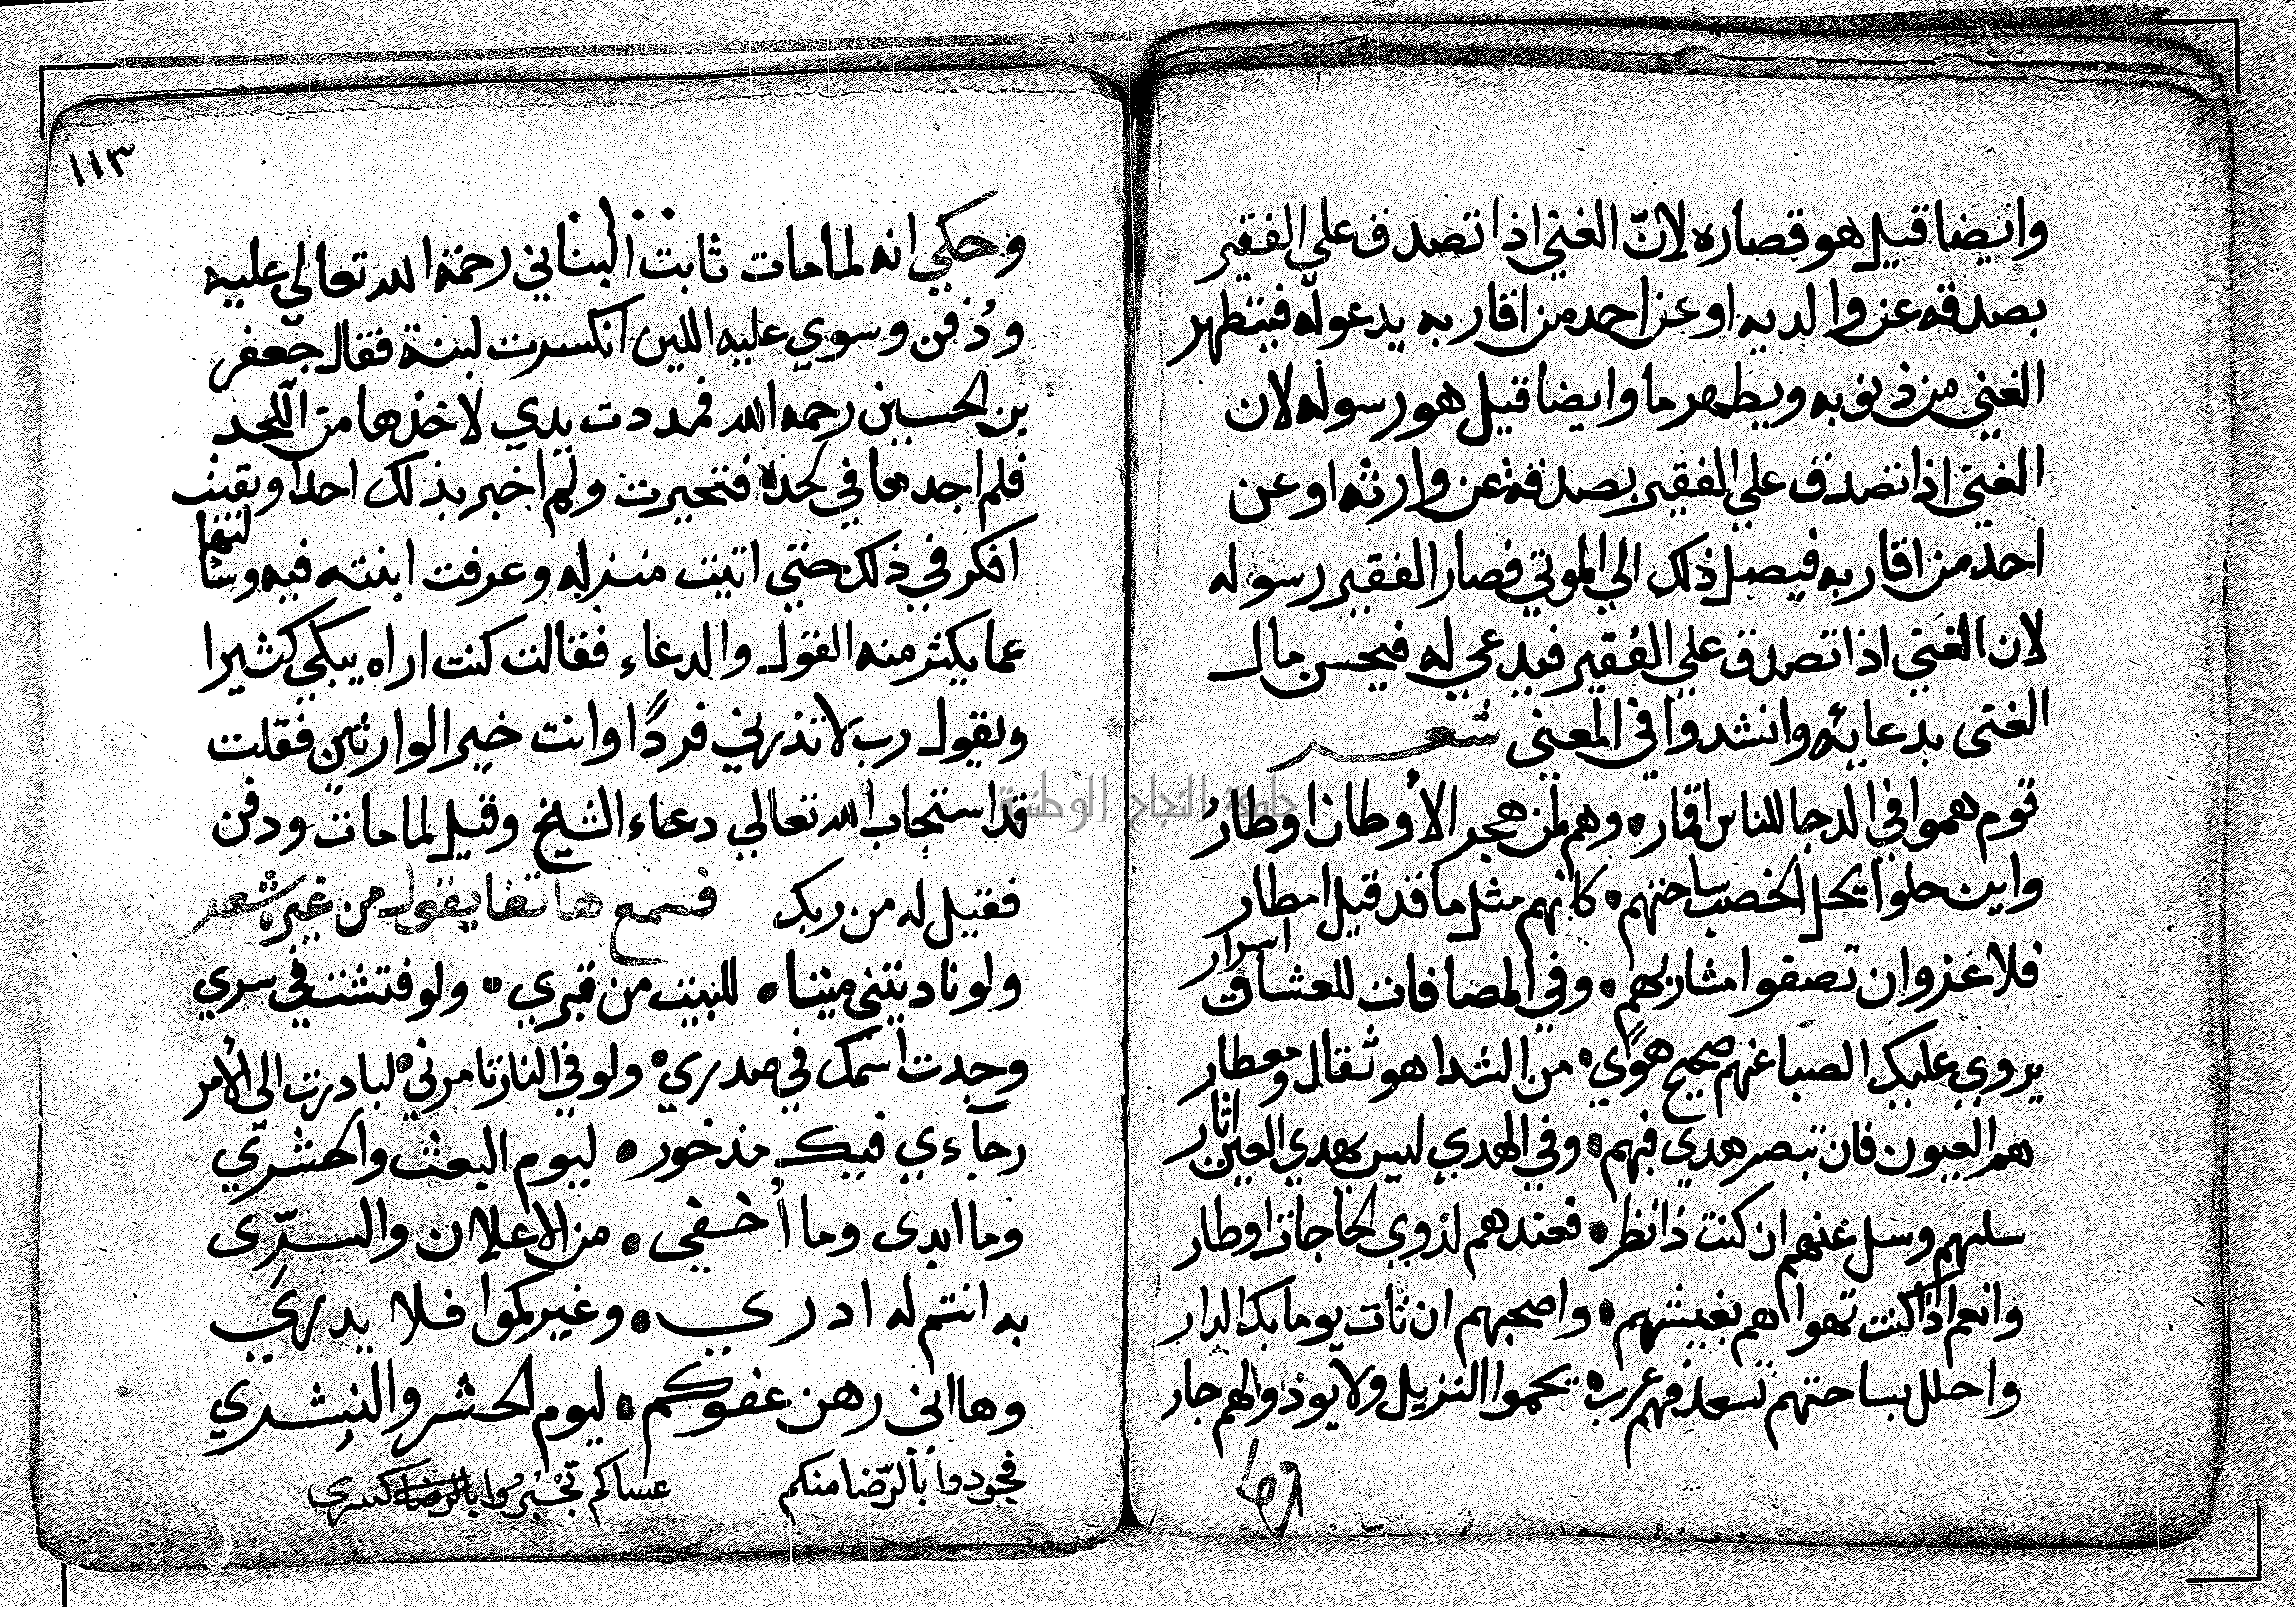 وايضا قيل هو قصاره لانّ الغني اذا تصدق علي الفقير
بصدقه عن والديه او عن احد من اقاربه يدعوله فيتطهر
الغني من ذنوبه ويطهرها وايضا قيل هو رسوله لان
الغني اذا تصدق علي الفقير بصدقة عن وارثه او عن
احد من اقاربه فيصل ذلك الي الموتي فصار الفقير رسوله
لان الغني اذا تصدق علي الفقير فيدعي له فيحسن حال
الغني بدعايه وانشدوا في المعني شعر
قوم هموا في الدجا للناس اقمار وهم لمن هجر الأوطان اوطار
واين حلوا يحل الخصب ساحتهم كانهم مثل ما قد قيل امطار
فلا غزوان تصفوا مشاربهم وفي المصافات للعشاق اسرار
يروي عليك الصبا عنهم صحيح هوًي من الشدا هو ثقال ومعطار
هم العيون فان تبصر هدي فبهم وفي الهدي ليس يهدي العين اثار
سلهم وسل عنهم ان كنت ذا نظر فعندهم لذوي الحاجات اوطار
وانعم اذا كنت تهواهم بغيشهم واصحبهم ان نات يوما بك الدار
واحلل بساحتهم تسعد فهم عرب يحموا النزيل ولا يوذوا لهم جار
وحكي
١١٣
وحكي انه لما مات ثابت البناني رحمة الله تعالي عليه
ودُفن وسوي عليه اللبن انكسرت لبنة فقال جعفر
بن الحسين رحمه الله فمددت يدي لاخذها من اللّحد
فلم اجدها في لحده فتحيرت ولم اخبر بذلك احدا وبقيت
افكر في ذلك حتي اتيت منزله وعرفت ابنته فيه وسالتها
عما يكثر منه القول والدعاء فقالت كنت اراه يبكي كثيرا
ويقول رب لا تذرني فردًا وانت خير الوارثين فقلت
قد استجاب الله تعالي دعاء الشيخ وقيل لما مات ودفن
فقيل له من ربك فسمع هاتفا يقول من غيره شعر
ولو ناديتني ميتا للبيت من قبري ولو فتشت في سري
وجدت اسمك في صدري ولو في النار تامرني لبادرت الي الأمر
رجآءي فيك مذخور ليوم البعث والحشري
وما ابدي وما أخفي من الاعلان والسرّي
به انتم له ادري وغيركموا فلا يدري
وها اني رهن عفوكم ليوم الحشر والنشري
فجودوا بالرّضا منكم عساكم تجبُروا كسري
جامعة النجاح الوطنية